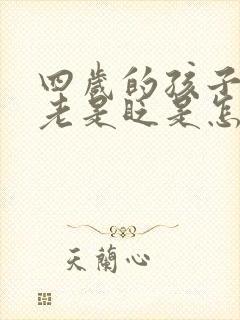 四歲的孩子
老是眨是怎
天蘭心